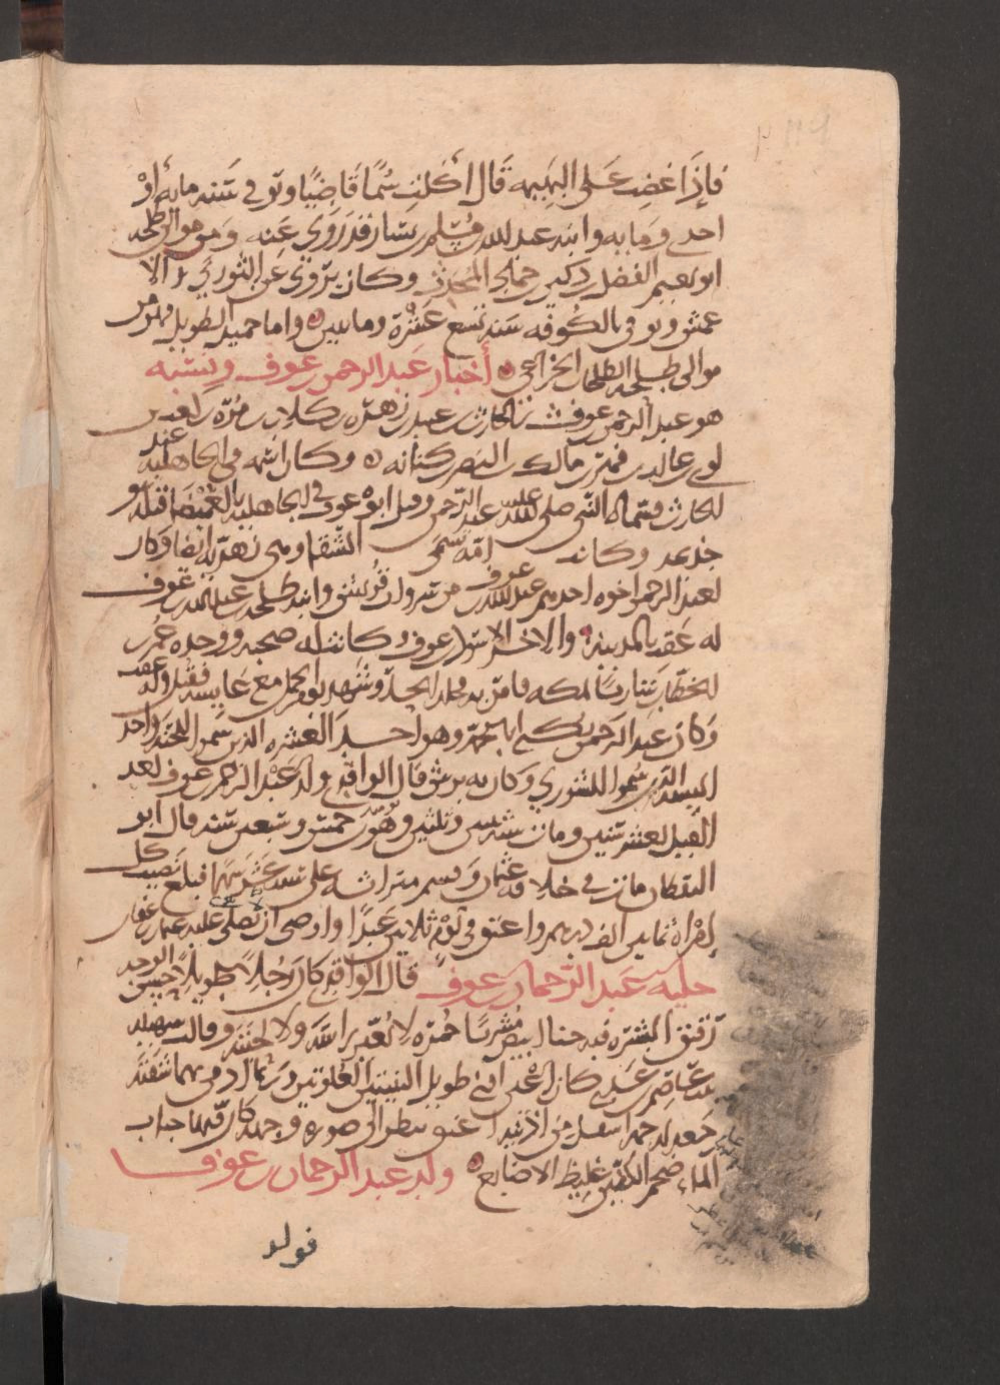 فإذا غضب على البهيمه قال أكلت سما قاضيا وتوفي سنه مايه أو
احدى ومايه وابنه عبد الله بن مسلم بن يسار قد روى عنه ومن موالي طلحه
ابو نعيم الفضل بن دكين المحدث وكان يروي عن الثوري والا
عمش وتوفي بالكوفه سنه تسع عشرة ومايتين واما حميد الطويل فهو من
موالي طلحه الطلحات الخزاعي أخبار عبد الرحمن بن عوف ونسبه
هو عبد الرحمن بن عوف بن الحارث بن عبد بن زهره بن كلاب بن مره بن كعب بن
لوي بن غالب بن فهر بن مالك بن النضر بن كنانه وكان اسمه في الجاهليه عبد
الحارث فسماه النبي صلى الله عليه عبد الرحمن وقتل ابوه عوف في الجاهليه بالغميصا قتله بنو
جذيمه وكانت امه تسمى الشفا وهي زهريه ايضا وكان
لعبد الرحمن اخوه احدهم عبد الله بن عوف من سروات قريش وابنه طلحه بن عبد الله بن عوف
له عقب بالمدينه والاخر الاسود بن عوف وكانت له صحبه ووجده عمر
بن الخطاب شاربا بمكه فامر به فجلد الحد وشهد يوم الجمل مع عايشه فقتل وله عقب
وكان عبد الرحمن يكنى ابا محمد وهو احد العشره الذين سموا للجنه واحد
السته الذين سموا للشوري وكان به برش قال الواقدي ولد عبد الرحمن بن عوف بعد
الفيل بعشر سنين ومات سنه اثنتين وثلثين وهو بن خمس وسبعين سنه قال ابو
اليقظان مات في خلافه عثمان وقسم ميراثه على سته عشر سهما فبلغ نصيب كل
امراة ثمانين الف درهم واعتق في يوم ثلاثين عبدا واوصى ان يصلي عليه عثمان بن عفان
حليه عبد الرحمان بن عوف قال الواقدي كان رجلا طويلا حسن الوجه
رقيق البشره فيه جنا ابيض مشربا حمره لا يغير راسه ولا لحيته وقالت سهله
بنت عاصم بن عدي كان ابيض اعين اقنى طويل النابين العلويين وربما ادمى بهما شفته
جعد له جمه اسفل من اذنيه اعنق
الماء ضخم الكفين غليظ الاصابع ولد عبد الرحمان بن عوف
فولد